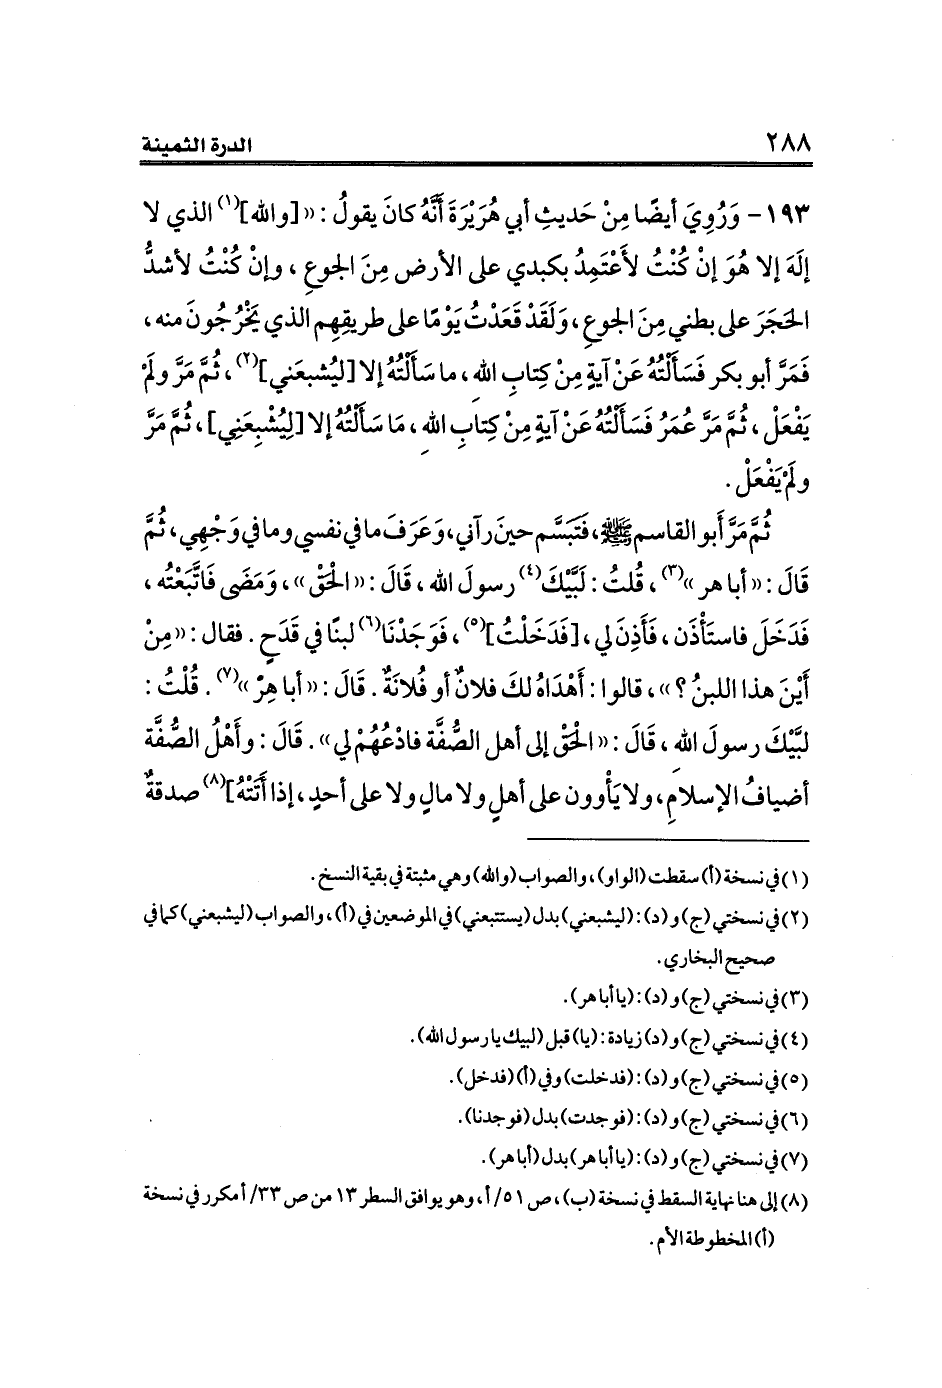 ٢٨٨ الدرة الثمينة
١٩٣- وَرُوِيَ أيضًا مِنْ حَديثِ أبي هُرَيْرَةَ أَنَّهُ كانَ يقولُ : «[والله](١) الذي لا
إلَهَ إلا هُوَ إنْ كُنْتُ لأَعْتَمِدُ بكبدي على الأرض مِنَ الجوعِ ، وإنْ كُنْتُ لأشدُّ
الحَجَرَ على بطني مِنَ الجوعِ ، وَلَقَدْ قَعَدْتُ يَوْمًا على طريقِهِم الذي يَخْرُجُونَ منه ،
فَمَرَّ أبو بكر فَسَأَلْتُهُ عَنْ آيةٍ مِنْ كِتابِ الله ، ما سَأَلْتُهُ إلا [ليُشبعَني](٢) ، ثُمَّ مَرَّ ولَمْ
يَفْعَلْ ، ثُمَّ مَرَّ عُمَرُ فَسَأَلْتُهُ عَنْ آيةٍ مِنْ كِتابِ الله ، مَا سَأَلْتُهُ إلا [لِيُشْبِعَنِي] ، ثُمَّ مَرَّ
ولَمْ يَفْعَلْ .
ثُمَّ مَرَّ أَبو القاسم ﷺ ، فَتَبَسَّم حينَ رآني ، وَعَرَفَ ما في نفسي وما في وَجْهِي ، ثُمَّ
قَالَ : «أباهر»(٣) ، قُلتُ : لَبَّيْكَ(٤) رسولَ الله ، قَالَ : «الْحَقْ» ، وَمَضَى فَاتَّبَعْتُه ،
فَدَخَلَ فاستَأْذَن ، فَأَذِنَ لي ، [فَدَخَلْتُ](٥) ، فَوَجَدْنَا(٦) لبنًا في قَدَحٍ . فقال : «مِنْ
أَيْنَ هذا اللبنُ ؟» ، قالوا : أَهْدَاهُ لكَ فلانٌ أو فُلانَةٌ . قَالَ : «أباهِرّ»(٧) . قُلْتُ :
لبَّيْكَ رسولَ الله ، قَالَ : «الحَقْ إلى أهل الصُّفَّة فادْعُهُمْ لي» . قَالَ : وأَهْلُ الصُّفَّة
أضيافُ الإسلامِ ، ولا يَأْوون على أهلٍ ولا مالٍ ولا على أحدٍ ، إذا أَتَتْهُ](٨) صدقةٌ
(١) في نسخة (أ) سقطت (الواو) ، والصواب (والله) وهي مثبتة في بقية النسخ .
(٢) في نسختي (ج) و (د) : (ليشبعني) بدل (يستتبعني) في الموضعين في (أ) ، والصواب (ليشبعني) كما في
صحيح البخاري .
(٣) في نسختي (ج) و (د) : (يا أباهر) .
(٤) في نسختي (ج) و (د) زيادة : (يا) قبل (لبيك يا رسول الله) .
(٥) في نسختي (ج) و (د) : (فدخلت) وفي (أ) (فدخل) .
(٦) في نسختي (ج) و (د) : (فوجدت) بدل (فوجدنا) .
(٧) في نسختي (ج) و (د) : (يا أباهر) بدل (أباهر) .
(٨) إلى هنا نهاية السقط في نسخة (ب) ، ص ٥١/ أ ، وهو يوافق السطر ١٣ من ص ٣٣/ أ مكرر في نسخة
(أ) المخطوطة الأم .